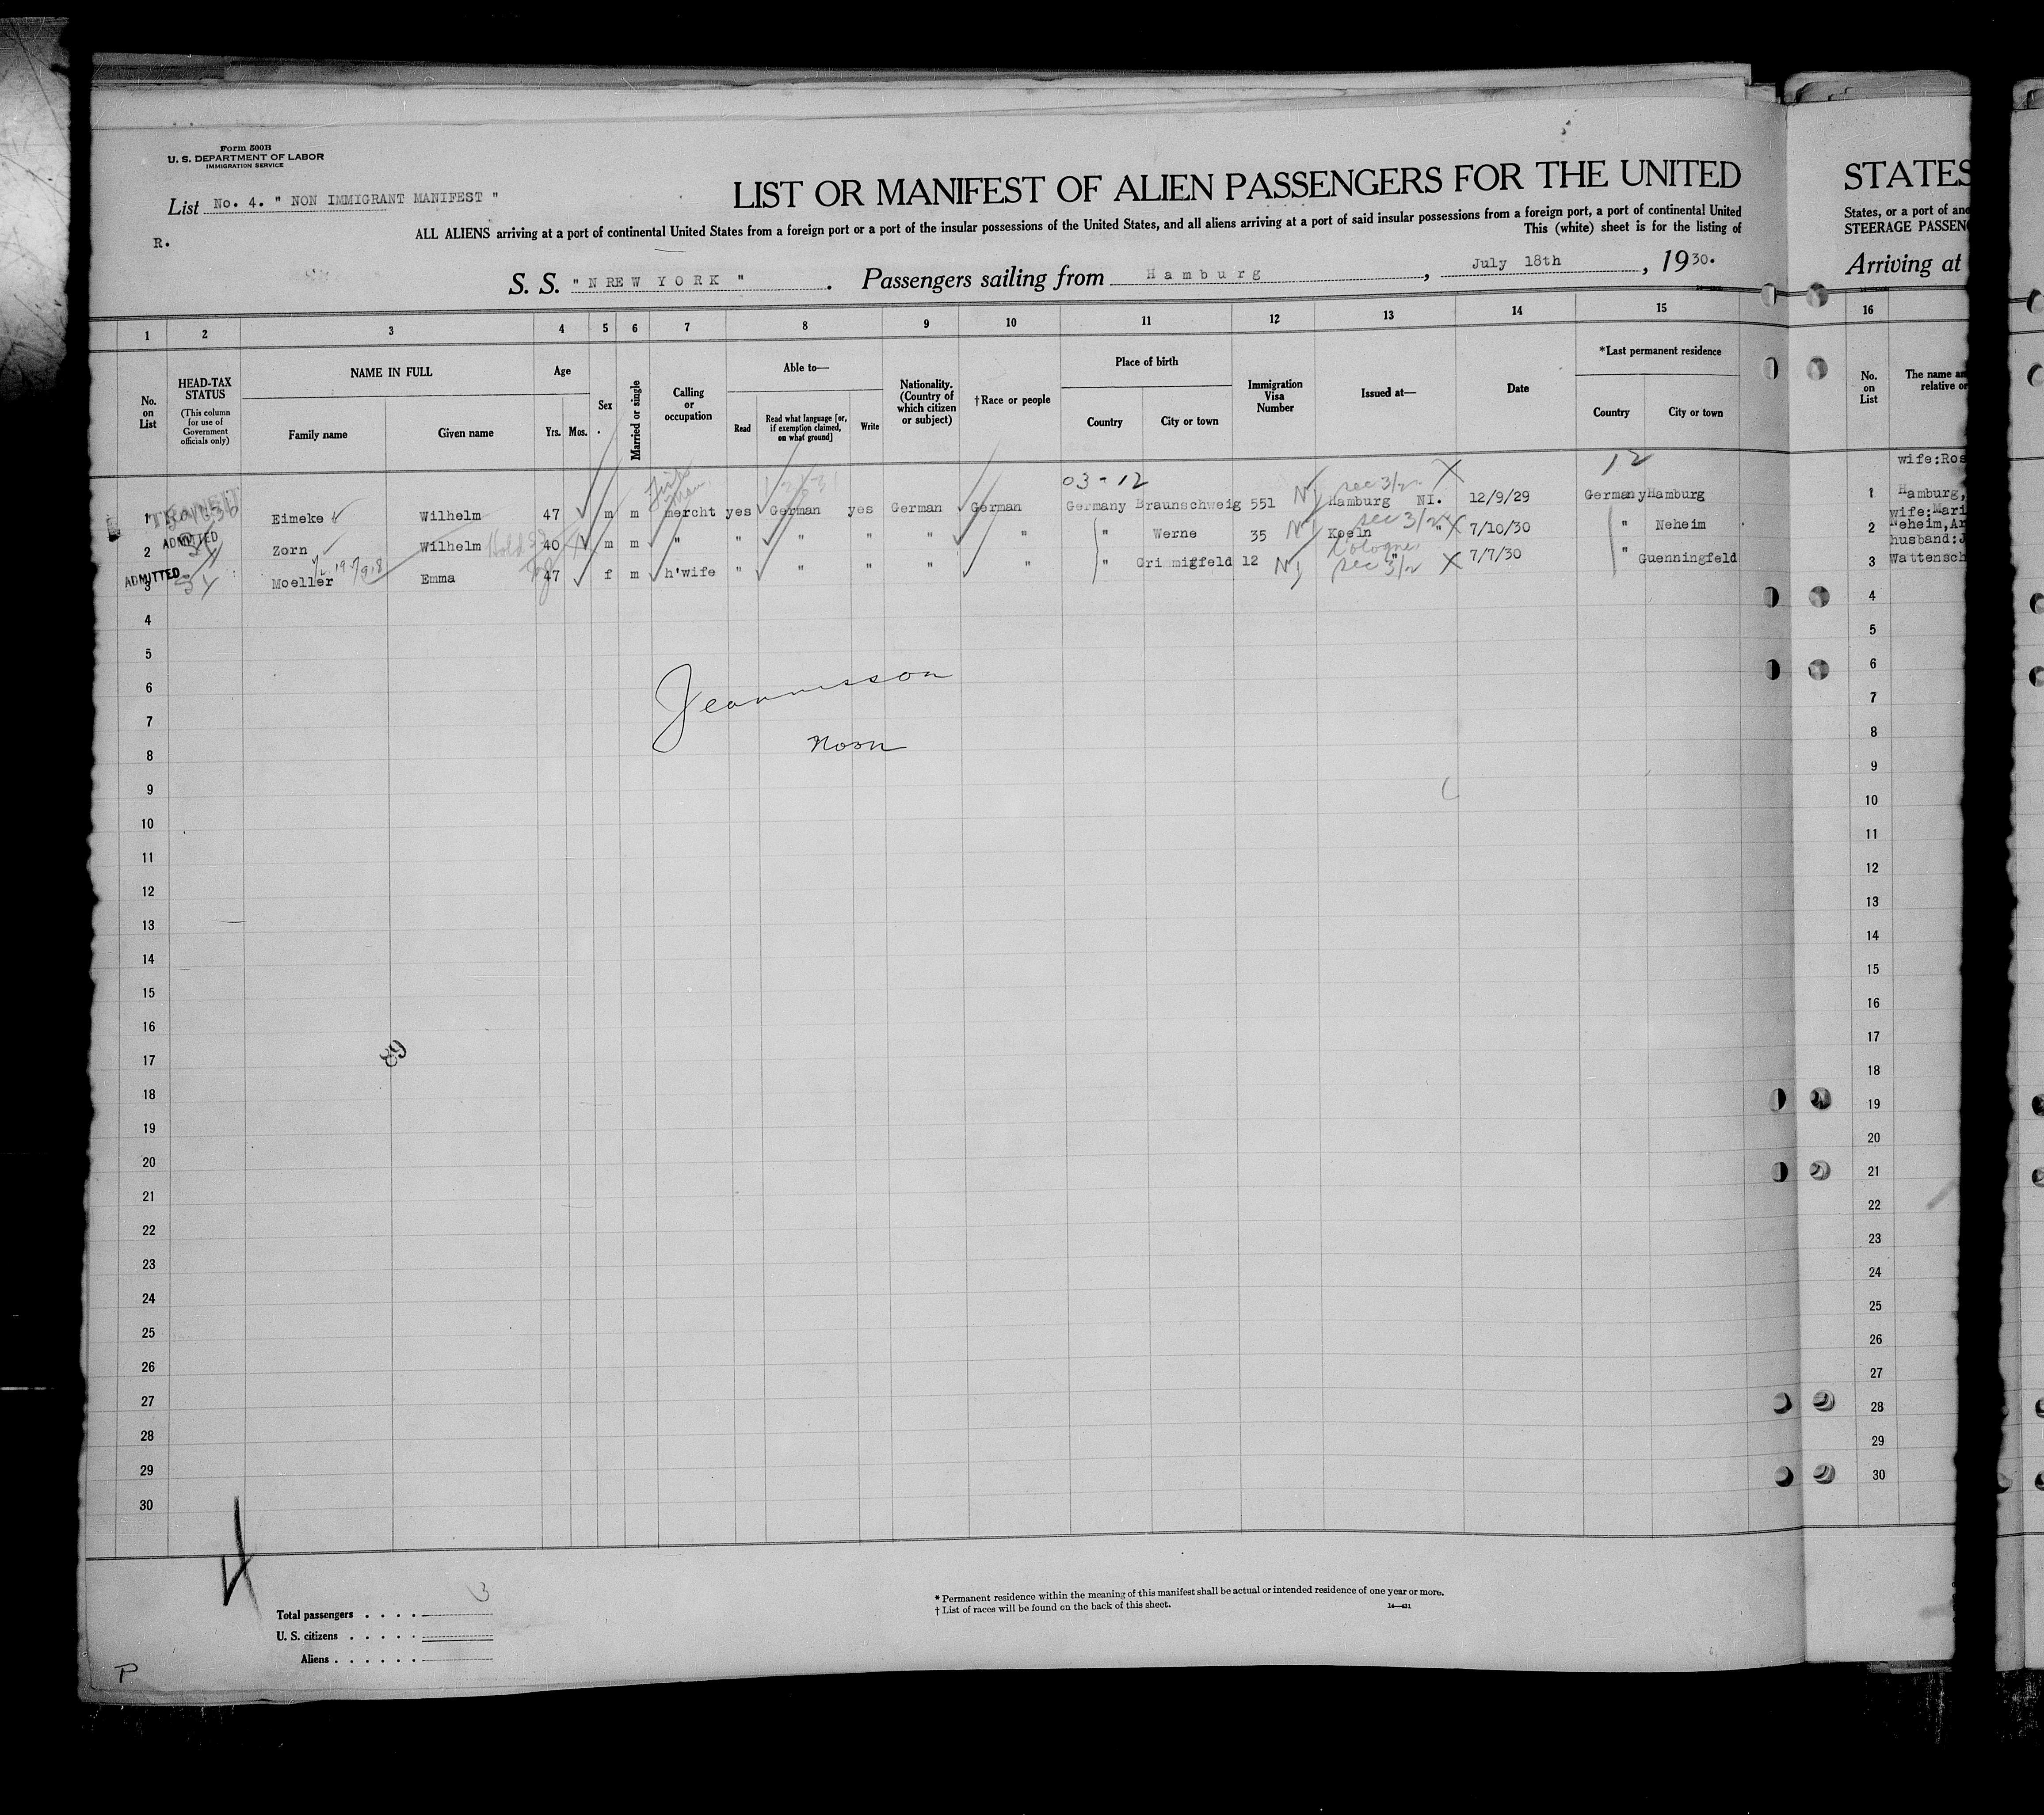 Form 500B
U. S. DEPARTMENT OF LABOR
IMMIGRATION SERVICE
List No. 4. " NON IMMIGRANT MANIFEST "
R.
LIST OR MANIFEST OF ALIEN PASSENGERS FOR THE UNITED
ALL ALIENS arriving at a port of continental United States from a foreign port or a port of the insular possessions of the United States, and all aliens arriving at a port of said insular possessions from a foreign port, a port of continental United
This (white) sheet is for the listing of
S. S. " N REW YORK " . Passengers sailing from Hamburg , July 18th , 1930.
1 2 3 4 5 6 7 8 9 10 11 12 13 14 15
No. on List
HEAD-TAX STATUS
(This column for use of Government officials only)
NAME IN FULL
Family name Given name
Age
Yrs. Mos.
Sex
Married or single
Calling or occupation
Able to—
Read Read what language [or, if exemption claimed, on what ground] Write
Nationality. (Country of which citizen or subject)
†Race or people
Place of birth
Country City or town
Immigration Visa Number
Issued at—
Date
*Last permanent residence
Country City or town
03-12 sec 3/2 12
1 TRANSIT Eimeke Wilhelm 47 m m mercht yes German yes German German Germany Braunschweig 551 Hamburg NI. 12/9/29 Germany Hamburg
sec 3/2
2 ADMITTED Zorn Wilhelm 40 m m " " " " " " " Werne 35 Koeln " 7/10/30 " Neheim
Cologne
3 ADMITTED Moeller Emma 47 f m h'wife " " " " " " Grimmigfeld 12 " 7/7/30 " Guenningfeld
sec 3/2
4
5
6
7
8
noon
9
10
11
12
13
14
15
16
17
89
18
19
20
21
22
23
24
25
26
27
28
29
30
Total passengers . . . . . 3
U. S. citizens . . . . .
Aliens . . . . . .
* Permanent residence within the meaning of this manifest shall be actual or intended residence of one year or more.
† List of races will be found on the back of this sheet.
P
STATES
States, or a port of
STEERAGE
Arriving at
16
No. on List
The name
relative or
wife:Ros
1 Hamburg,
wife:Mari
2 Neheim,Ar
husband:J
3 Wattensch
4
5
6
7
8
9
10
11
12
13
14
15
16
17
18
19
20
21
22
23
24
25
26
27
28
29
30